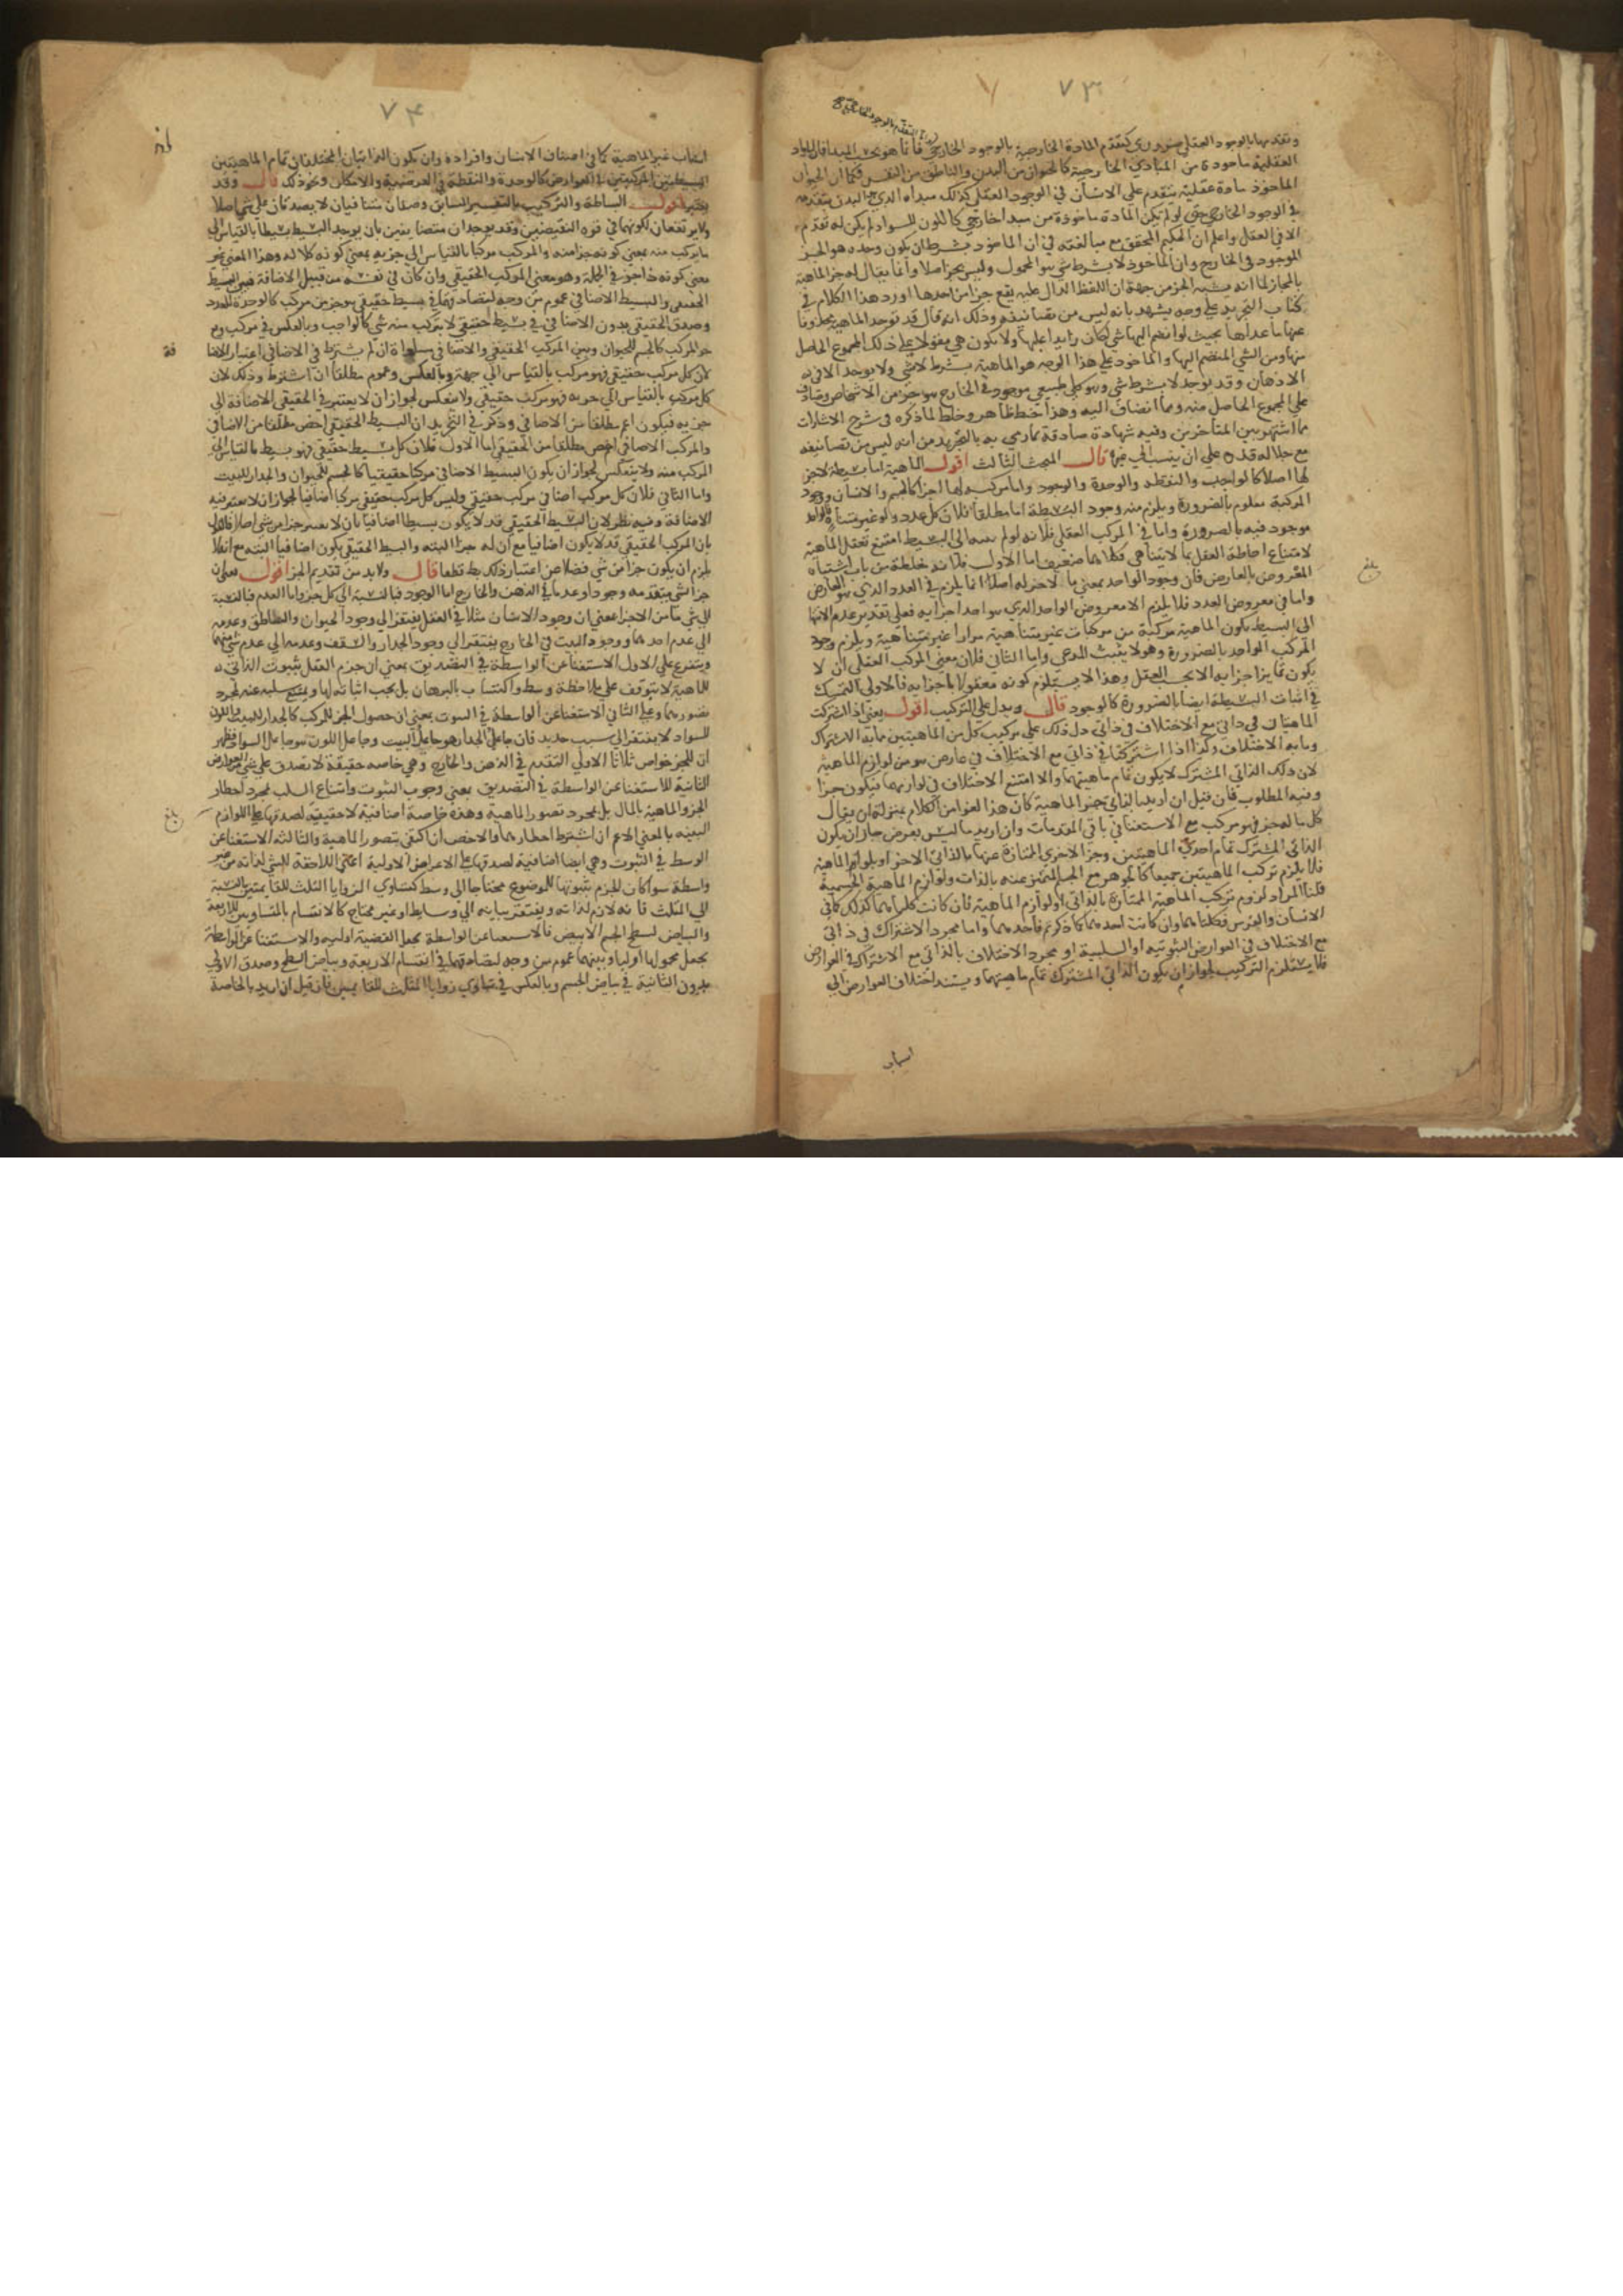 ٧٣
وتقدمها بالوجود العقلي ضروري كتقدم المادة الخارجية بالوجود الخارجي
العقلية ماخوذة من المبادي الخارجية كالحيوان من البدن والناطق من النفس فكما ان الحيوان
الماخوذ مادة عقلية يتقدم علي الانسان في الوجود العقلي كذلك مبداه الذي هو البدن يتقدمه
في الوجود الخارجي حتي لو لم يكن المادة ماخوذة من مبدا خارجي كاللون للسواد لم يكن له تقدم
الا في العقل واعلم ان الحكيم المحقق مع مبالغته في ان الماخوذ بشرط ان يكون وحده هو الجز
الموجود في الخارج وان الماخوذ لا بشرط شي هو المحمول وليس بجز اصلا وانما يقال له جز الماهية
بالمجاز لما انه يشبه الجز من جهة ان اللفظ الدال عليه يقع جزا من حدها اورد هذا الكلام في
كتاب التجريد علي وجه يشهد بانه ليس من تصانيفه وذلك انه قال قد توخذ الماهية محذوفا
عنها ما عداها بحيث لو انضم اليها شي لكان زايدا عليها ولا يكون هي مقولا علي ذلك المجموع الحاصل
منها ومن الشي المنضم اليها والماخوذ علي هذا الوجه هو الماهية بشرط لا شي ولا يوجد الا في
الاذهان وقد توخذ لا بشرط شي وهو كلي طبيعي موجود في الخارج هو جز من الاشخاص وصادق
علي المجموع الحاصل منه ومما انضاف اليه وهذا خبط ظاهر وخلط لما ذكره في شرح الاشارات
مما اشتهر بين المتاخرين وفيه شهادة صادقة بما رمي به بالتجريد من انه ليس من تصانيفه
مع جلالة قدره علي ان ينسب الي غيره قال المبحث الثالث اقول الماهية اما بسيطة لا جز
لها اصلا كالواجب والنقطة والوحدة والوجود واما مركبة لها اجزا كالجسم والانسان ووجود
المركبة معلوم بالضرورة ويلزم منه وجود البسيطة اما مطلقا فلان كل عدد ولو غير متناه فالواحد
موجود فيه بالضرورة واما في المركب العقلي فلانه لو لم ينته الي البسيط امتنع تعقل الماهية
لامتناع احاطة العقل بما لا يتناهي وكلاهما ضعيف اما الاول فلانه غلط من باب اشتباه
المعروض بالعارض فان وجود الواحد بمعني ما لا جز له اصلا انما يلزم في العدد الذي هو العارض
واما في معروض العدد فلا يلزم الا معروض الواحد الذي هو احد اجزايه فعلي تقدير عدم الانتها
الي البسيط يكون الماهية مركبة من مركبات غير متناهية مرارا غير متناهية ويلزم وجود
المركب الواحد بالضرورة وهو لا يثبت المدعي واما الثاني فلان معني المركب العقلي ان لا
يكون تمايز اجزايه الا بحسب العقل وهذا لا يستلزم كونه معقولا باجزايه فالاولي التمسك
في اثبات البسيطة ايضا بالضرورة كالوجود قال ويدل علي التركيب اقول يعني اذا اشتركت
الماهيتان في ذاتي مع الاختلاف في ذاتي دل ذلك علي تركيب كل من الماهيتين مما به الاشتراك
وما به الاختلاف وكذا اذا اشتركتا في ذاتي مع الاختلاف في عارض هو من لوازم الماهية
لان ذلك الذاتي المشترك لا يكون تمام ماهيتهما والا امتنع الاختلاف في لوازمهما فيكون جزا
وفيه المطلوب فان قيل ان اريد بالذاتي جز الماهية كان هذا لغوا من الكلام بمنزلة ان يقال
كل ما له جز فهو مركب مع الاستغنا في باقي المقدمات وان اريد ما ليس بعرض جاز ان يكون
الذاتي المشترك تمام احدي الماهيتين وجز الاخري الممتازة عنها بالذاتي الاخر او بلوازم الماهية
فلا يلزم تركب الماهيتين جميعا كالجوهر مع الجسم المتميز عنه بالذات ولوازم الماهية الجسمية
قلنا المراد لزوم تركب الماهية الممتازة بالذاتي او لوازم الماهية فان كانت كلتاهما كذلك كما في
الانسان والفرس فكلتاهما وان كانت احديهما كما ذكرتم فاحديهما واما مجرد الاشتراك في ذاتي
مع الاختلاف في العوارض الثبوتية او السلبية او مجرد الاختلاف بالذاتي مع الاشتراك في العوارض
فلا يستلزم التركيب لجواز ان يكون الذاتي المشترك تمام ماهيتهما ويستند اختلاف العوارض الي
اسباب
بلغ
٧٤
اسباب غير الماهية كما في اصناف الانسان وافراده وان يكون الذاتيان المختلفان تمام الماهيتين
البسيطتين المشتركتين في العوارض كالوحدة والنقطة في العرضية والامكان ونحو ذلك قال وقد
يعتبر اقول البساطة والتركيب بالتفسير السابق وصفان متنافيان لا يصدقان علي شي اصلا
ولا يرتفعان لكونهما في قوة النقيضين وقد يوخذان متضايفين بان يوخذ البسيط بسيطا بالقياس الي
ما يركب منه بمعني كونه جزا منه والمركب مركبا بالقياس الي جزيه بمعني كونه كلا له وهذا المعني غير
معني كونه ذا جز في الجملة وهو معني المركب الحقيقي وان كان في نفسه من قبيل الاضافة فبين البسيط
الحقيقي والبسيط الاضافي عموم من وجه لتصادقهما في بسيط حقيقي هو جز من مركب كالوحدة للعدد
وصدق الحقيقي بدون الاضافي في بسيط حقيقي لا يتركب منه شي كالواجب وبالعكس في مركب وقع
جزا لمركب كالجسم للحيوان وبين المركب الحقيقي والاضافي مساواة ان لم يشترط في الاضافي اعتبار الاضافة
لان كل مركب حقيقي فهو مركب بالقياس الي جزيه وبالعكس وعموم مطلقا ان اشترط وذلك لان
كل مركب بالقياس الي جزيه فهو مركب حقيقي ولا ينعكس لجواز ان لا يعتبر في الحقيقي الاضافة الي
جزيه فيكون اعم مطلقا من الاضافي وذكر في التجريد ان البسيط الحقيقي اخص مطلقا من الاضافي
والمركب الاضافي اخص مطلقا من الحقيقي اما الاول فلان كل بسيط حقيقي فهو بسيط بالقياس الي
المركب منه ولا ينعكس لجواز ان يكون البسيط الاضافي مركبا حقيقيا كالجسم للحيوان والجدار للبيت
واما الثاني فلان كل مركب اضافي مركب حقيقي وليس كل مركب حقيقي مركبا اضافيا لجواز ان لا يعتبر فيه
الاضافة وفيه نظر لان البسيط الحقيقي قد لا يكون بسيطا اضافيا بان لا يعتبر جزا من شي اصلا فالقول
بان المركب الحقيقي قد لا يكون اضافيا مع ان له جزا البتة والبسيط الحقيقي يكون اضافيا البتة مع انه لا
يلزم ان يكون جزا من شي فضلا عن اعتبار ذلك بط قطعا قال ولا بد من تقديم الجز اقول يعني ان
جز الشي يتقدمه وجودا وعدما في الذهن والخارج اما الوجود فبالنسبة الي كل جز واما العدم فبالنسبة
الي شي ما من الاجزا بمعني ان وجود الانسان مثلا في العقل يفتقر الي وجود الحيوان والناطق وعدمه
الي عدم احدهما ووجود البيت في الخارج يفتقر الي وجود الجدار والسقف وعدمه الي عدم شي منهما
ويتفرع علي الاول الاستغنا عن الواسطة في التصديق بمعني ان جزم العقل بثبوت الذاتي
للماهية لا يتوقف علي ملاحظة وسط واكتساب بالبرهان بل يجب اثباته لها ويمتنع سلبه عنه بمجرد
تصورهما وعلي الثاني الاستغنا عن الواسطة في الثبوت بمعني ان حصول الجز للمركب كالجدار للبيت واللون
للسواد لا يفتقر الي سبب جديد فان جاعل الجدار هو جاعل البيت وجاعل اللون هو جاعل السواد فظهر
ان للجز خواص ثلاثا الاولي التقدم في الذهن والخارج وهي خاصة حقيقة لا تصدق علي شي من العوارض
الثانية الاستغنا عن الواسطة في التصديق بمعني وجوب الثبوت وامتناع السلب بمجرد اخطار
الجز والماهية بالبال بل بمجرد تصور الماهية وهذه خاصة اضافية لا حقيقية لصدقها علي اللوازم
البينة بالمعني الاعم ان اشترط اخطارهما والاخص ان اكتفي بتصور الماهية والثالثة الاستغنا عن
الوسط في الثبوت وهي ايضا اضافية لصدقها علي الاعراض الاولية اعني اللاحقة للشي لذاته من غير
واسطة سوا كان الجزم بثبوتها للموضوع محتاجا الي وسط كتساوي الزوايا الثلث للقايمتين بالنسبة
الي المثلث فانه لازم لذاته ويفتقر بيانه الي وسايط او غير محتاج كالانقسام بالمتساويين للاربعة
والبياض لسطح الجسم الابيض فالاستغنا عن الواسطة يجعل القضية اولية والاستغنا عن الواسطة
يجعل محمولها اوليا وبينهما عموم من وجه لتصادقهما في انقسام الاربعة وبياض السطح وصدق الاولي
بدون الثانية في بياض الجسم وبالعكس في تساوي زوايا المثلث للقايمتين فان قيل ان اريد بالخاصة
بلغ